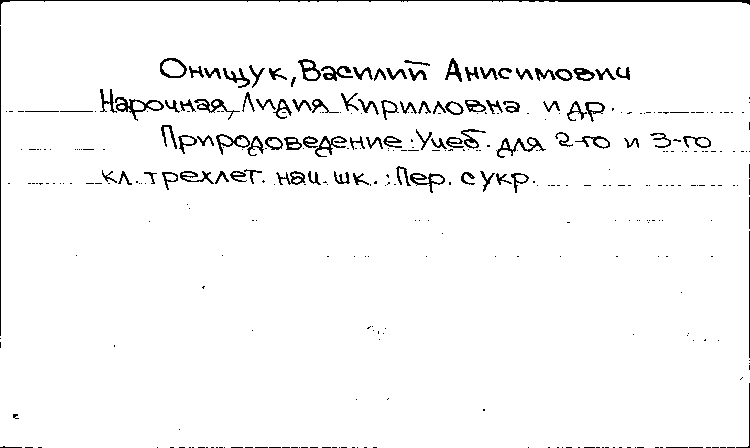 Онищук, Василий Анисимович
Нарочная, Лидия Кирилловна и др.
Природоведение: Учеб. для 2-го и 3-го
кл. трехлет. нач. шк.: Пер. с укр.